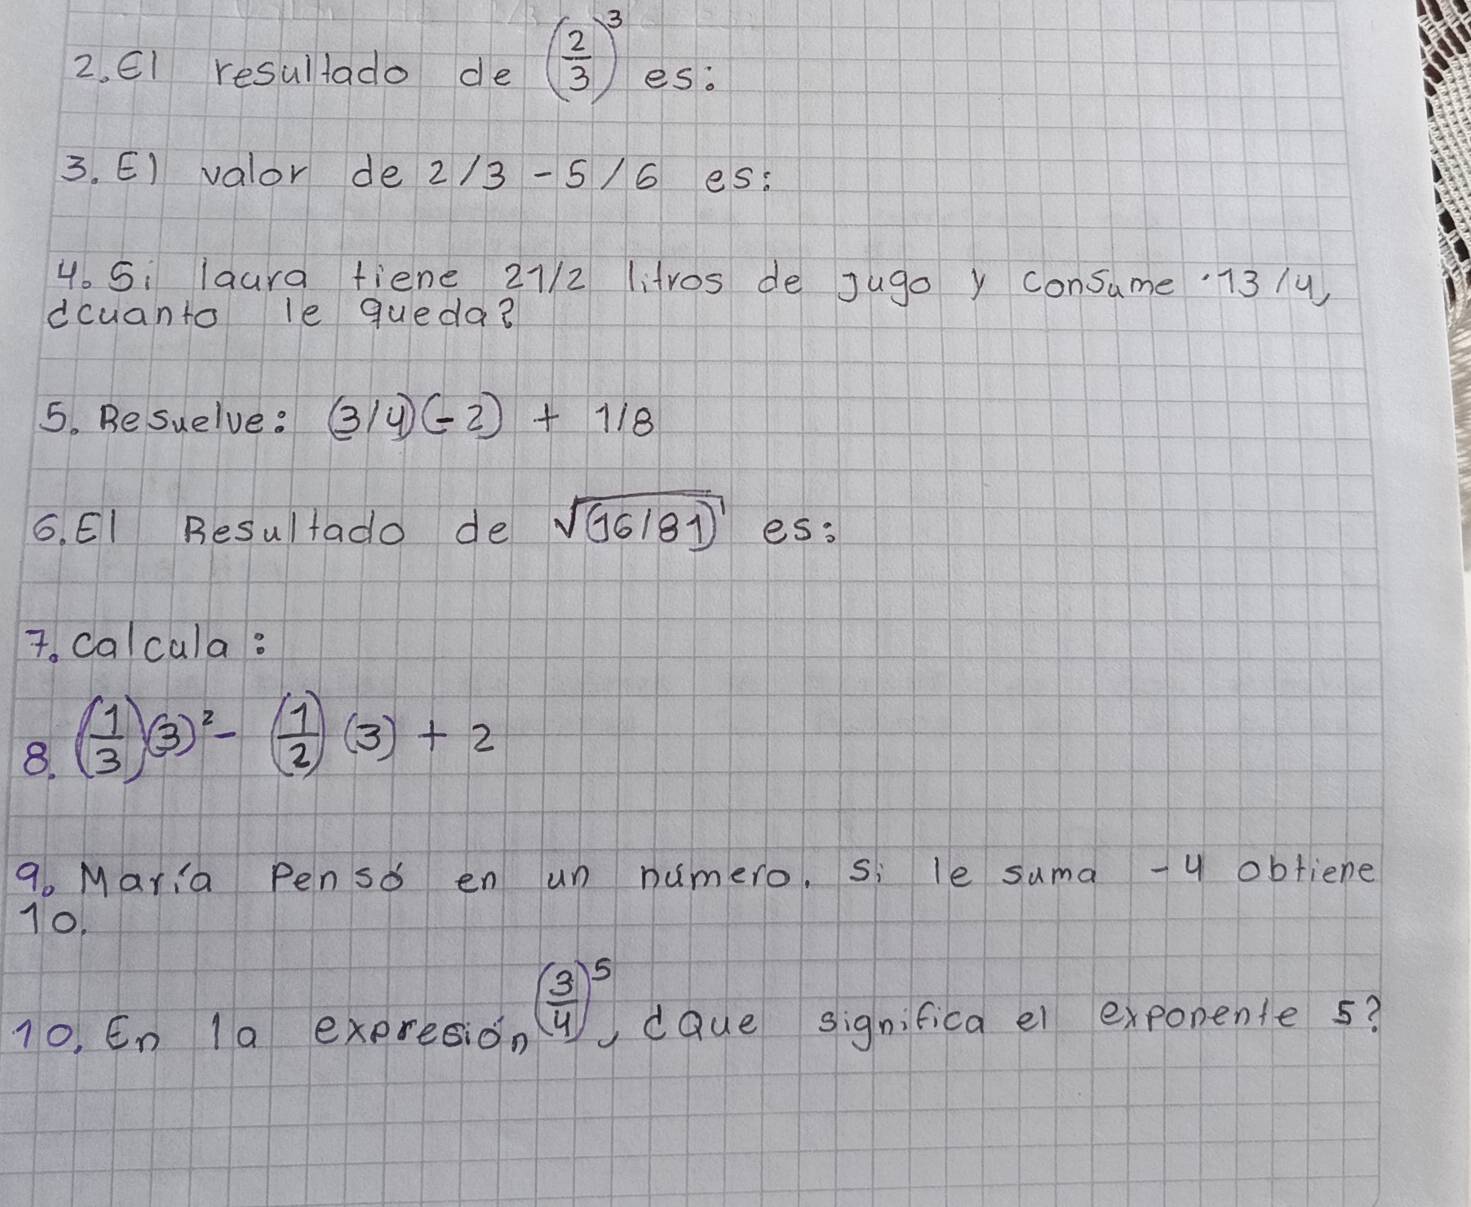 2. El resultado de (2/3)³ es:
3. El valor de 2/3 - 5/6 es:
4. Si laura tiene 21/2 litros de jugo y consume 13/4,
¿cuanto le queda?
5. Resuelve: (3/4)(-2) + 1/8
6. El Resultado de √(16/81) es:
7. calcula:
8. (1/3)(3)² - (1/2)(3) + 2
9. María Pensó en un número. Si le suma -4 obtiene
10.
10. En la expresión (3/4)⁵, ¿Que significa el exponente 5?